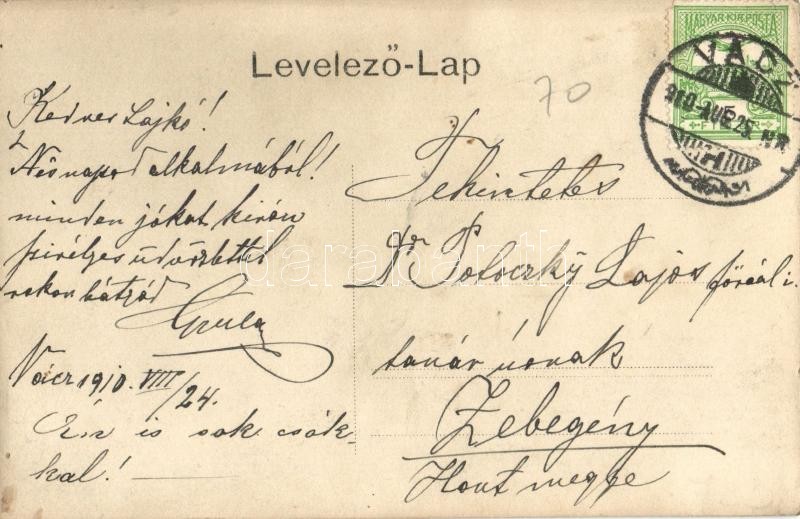 Levelező-Lap
70
MAGYAR KIR. POSTA
VÁCZ
910 AUG 25
Kedves Lajkó!
Névnapod alkalmából!
minden jókat kíván
szivélyes üdvözlettel
rokon bátyád
Gyula
Vácz 1910. VIII/24.
is sok csók-
kal!
Tekintetes
Dr. Potoczky Lajos főreál i.
tanár úrnak
Zebegény
Hont megye
darabanth